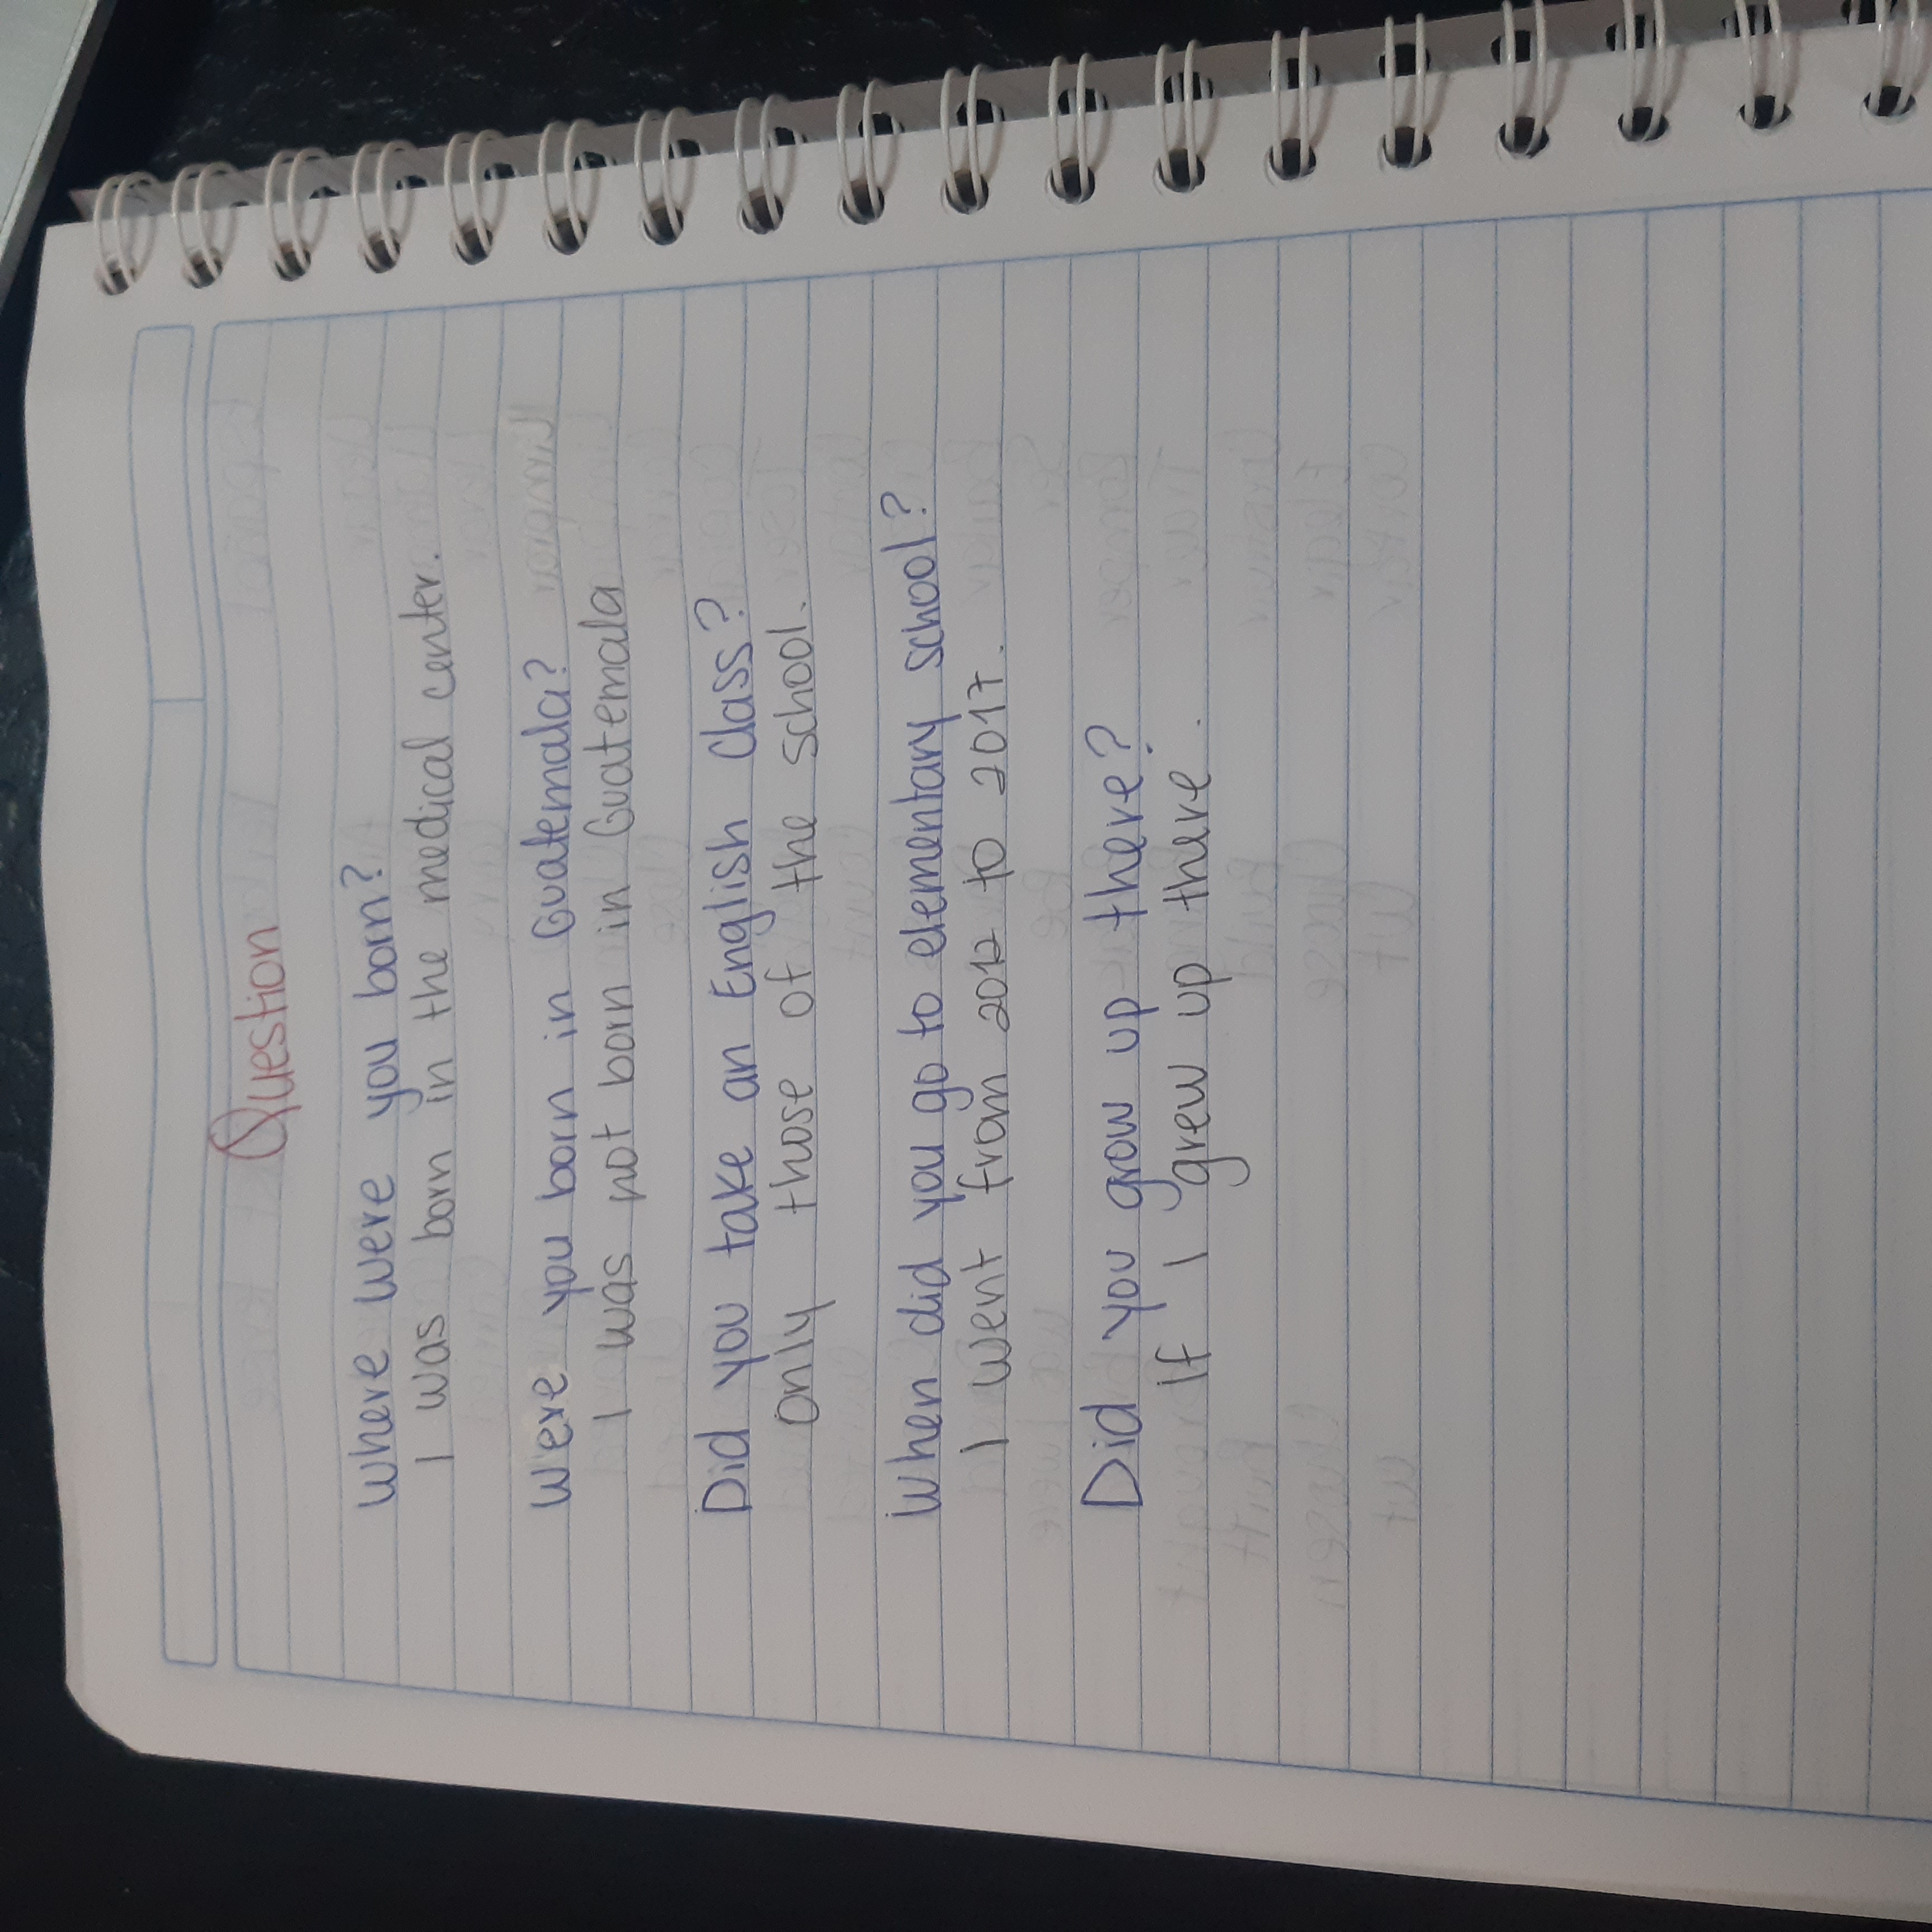 Question
Where were you born?
I was born in the medical center.
Were you born in Guatemala?
I was not born in Guatemala
Did you take an English class?
Only those of the school.
When did you go to elementary school?
I went from 2012 to 2017.
Did you grow up there?
If I grew up there.